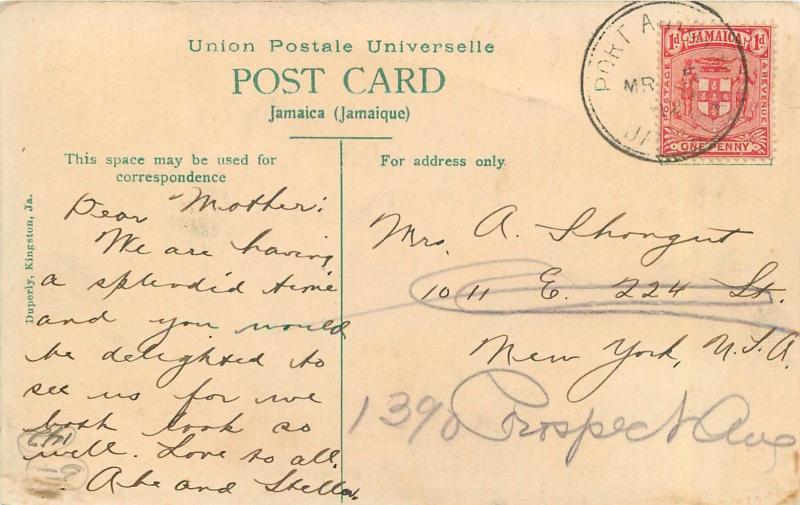 Union Postale Universelle
POST CARD
Jamaica (Jamaique)
This space may be used for
correspondence
For address only
Duperly, Kingston, Ja.
PORT A
MR 5
12
JA
JAMAICA
1d 1d
POSTAGE & REVENUE
ONE PENNY
Dear Mother:
We are having
a splendid time
and you would
be delighted to
see us for we
both look so
well. Love to all.
Abe and Stella
Mrs. A. Shongut
1011 E. 224 St.
New York, N.S.A.
1390 Prospect Ave